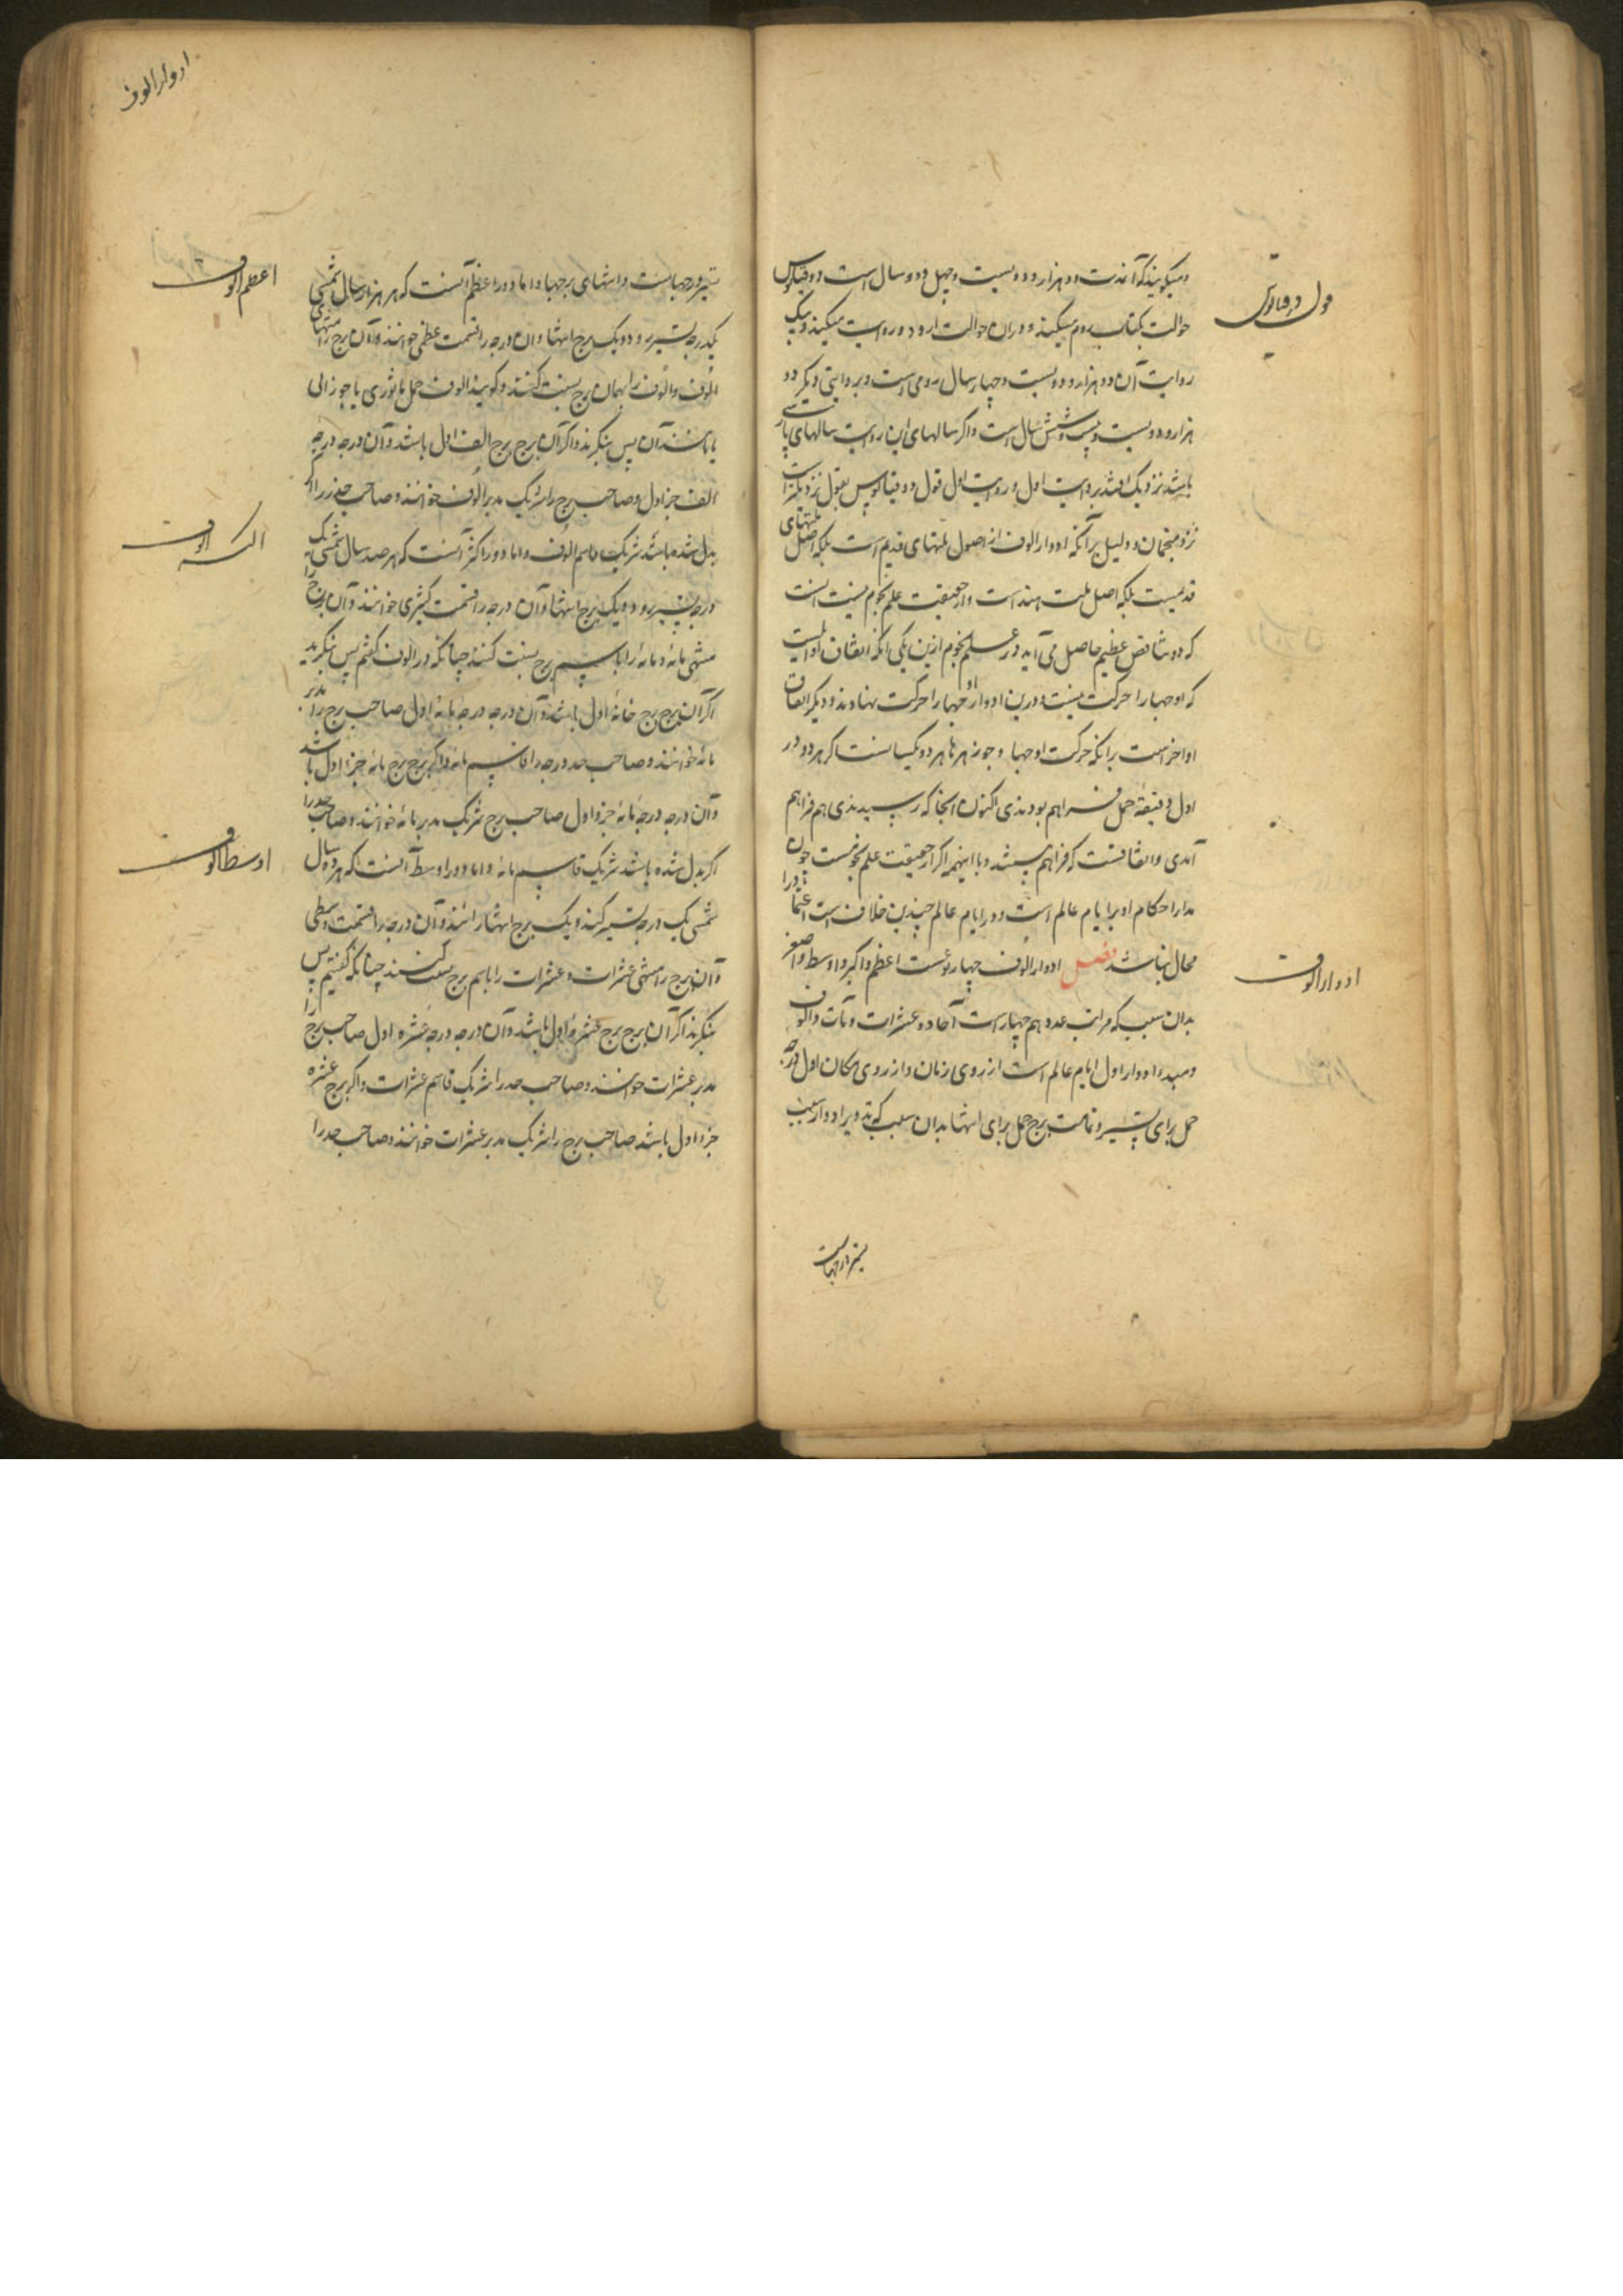 میگویند که آنمدت دو هزار و دویست و چهل و دو سال است دوقیانوس
قول دوقیانوس
حوالت بکتاب روم میکند و در ان حوالت او دو روایت میکند و بیک
روایت آن دو هزار و دویست و چهار سال رومی است و بروایتی دیگر دو
هزار و دویست و بیست و شش سال است و اکر سالهای این روایت سالهای پارسی
باشد نزدیک افتد بروایت اول و روایت اول قول دوقیانوس بقول نزدیکتر است
نزد منجمان و دلیل بر آنکه ادوار الوف از اصول ملتهای قدیم است بلکه اصل ملتهای
قدیمست بلکه اصل ملت هند است و از حقیقت علم نجوم نیست آنست
که دو تناقض عظیم حاصل می آید در علم نجوم ازین یکی آنکه اتفاق اوایلست
که اوجها را حرکت نیست و درین ادوار اوجها را حرکت نهادند و دیگر اتفاق
اواخر است برانکه حرکت اوجها و جوزهرها هر دو یکسانست اکر هر دو در
اول دقیقهٔ حمل فراهم بودندی اکنون آنجا که رسیدندی هم فراهم
آمدی و اتفاقست که فراهم نیستند و با اینهمه اکر از حقیقت علم نجومست چون
مدار احکام او بر ایام عالم است و در ایام عالم چندین خلاف است اعتماد را
محال نباشد فصل ادوار الوف چهار نوعست اعظم و اکبر و اوسط و اصغر
ادوار الوف
بدان سبب که مراتب عدد هم چهار است آحاد و عشرات و مآت و الوف
و مبدء ادوار اول ایام عالم است از روی زمان و از روی مکان اول درجه
حمل برای تسییر و تمامت برج حمل برای انتها بدان سبب که تدویر ادوار بسبب
تسیر درجهاست
ادوار الوف
تسییر درجهاست و انتهای برجها و اما دور اعظم آنست که هر هزار سال شمسی
اعظم الوف
یکدرجه تسییر رود و یک برج انتها و ان درجه را قسمت عظمی خوانند و آن برج را منتهای
الوف و الوف را بهمان برج نسبت کنند و کویند الوف حمل یا ثوری یا جوزائی
یا مانند آن پس بنکرند و اکر آن برج برج الف اول باشد و آن درجه درجهٔ
الف جز اول و صاحب برج را شریک مدبر الوف خوانند و صاحب حد را اکر
بدل شده باشد شریک قاسم الوف و اما دور اکبر آنست که هر صد سال شمسی یک
اکبر الوف
درجه تسییر رود و یک برج انتها و آن درجه را قسمت کبری خوانند و آن برج را
منتهی مائه و مائه را باسم برج نسبت کنند چنانکه در الوف کفتم پس بنکرید
اکر آن برج برج مائهٔ اول باشد و آن درجه درجه مائهٔ اول صاحب برج را مدبر
مائه خوانند و صاحب حد درجه را قاسم مائه و اکر برج برج مائه جزء اول باشد
و آن درجه درجهٔ مائهٔ جزء اول صاحب برج شریک مدبر مائه خوانند و صاحب حد را
اکر بدل شده باشد شریک قاسم مائه و اما دور اوسط آنست که هر ده سال
اوسط الوف
شمسی یک درجه تسییر کنند و یک برج انتها رانند و آن درجه را قسمت وسطی
و آن برج را منتهی عشرات و عشرات را باسم برج نسبت کنند چنانکه کفتیم پس
بنکرند اکر آن برج برج عشره اول باشد و آن درجه درجهٔ عشره اول صاحب برج را
مدبر عشرات خوانند و صاحب حد را شریک قاسم عشرات و اکر برج عشره
جزء اول باشد صاحب برج را شریک مدبر عشرات خوانند و صاحب حد را